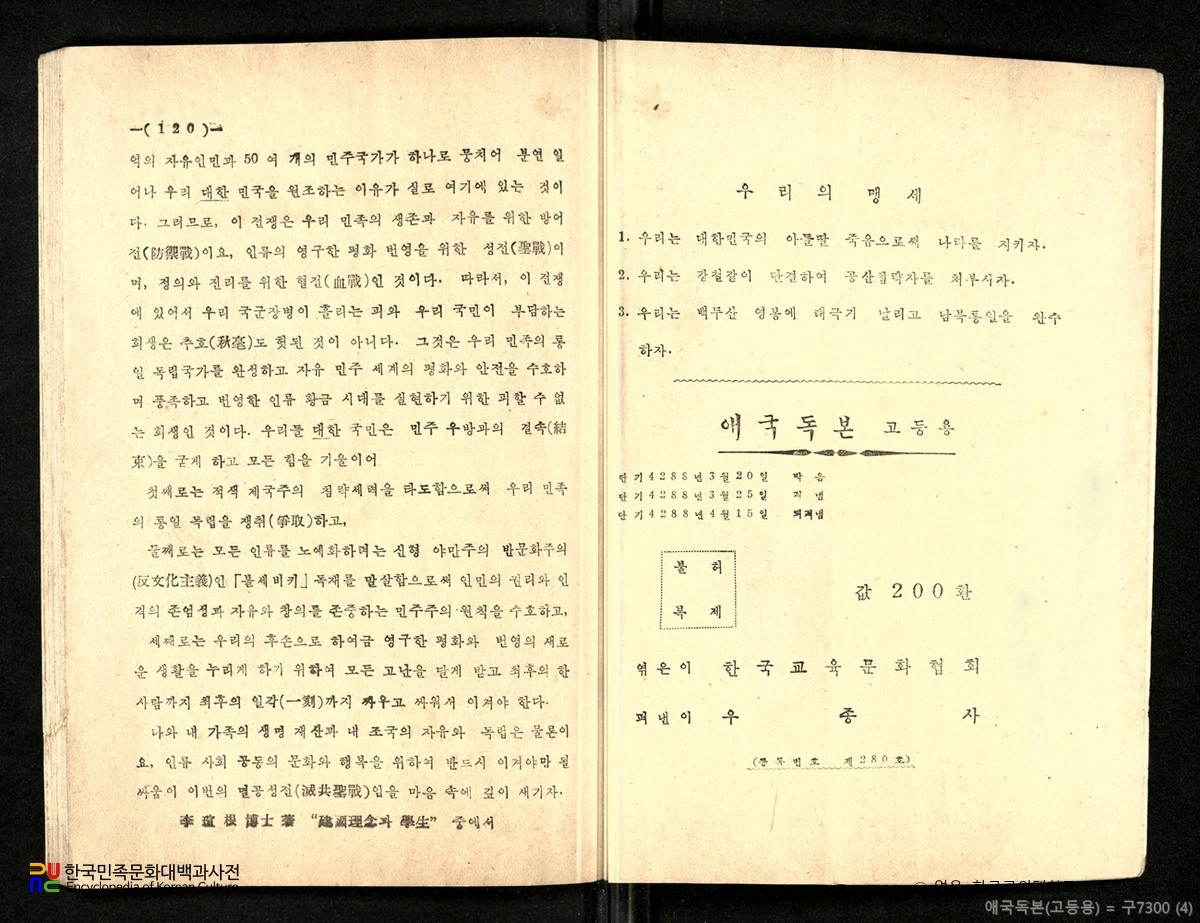 —( 1 2 0 )—
억의 자유인민과 50 여 개의 민주국가가 하나로 뭉치어 분연 일
어나 우리 대한 민국을 원조하는 이유가 실로 여기에 있는 것이
다. 그러므로, 이 전쟁은 우리 민족의 생존과 자유를 위한 방어
전(防禦戰)이요, 인류의 영구한 평화 번영을 위한 성전(聖戰)이
며, 정의와 진리를 위한 혈전(血戰)인 것이다. 따라서, 이 전쟁
에 있어서 우리 국군장병이 흘리는 피와 우리 국민이 부담하는
희생은 추호(秋毫)도 헛된 것이 아니다. 그것은 우리 민족의 통
일 독립국가를 완성하고 자유 민주 세계의 평화와 안전을 수호하
며 풍족하고 번영한 인류 황금 시대를 실현하기 위한 피할 수 없
는 희생인 것이다. 우리들 대한 국민은 민주 우방과의 결속(結
束)을 굳게 하고 모든 힘을 기울이어
첫째로는 적색 제국주의 침략세력을 타도함으로써 우리 민족
의 통일 독립을 쟁취(爭取)하고,
둘째로는 모든 인류를 노예화하려는 신형 야만주의 반문화주의
(反文化主義)인 「볼세비키」 독재를 말살함으로써 인민의 권리와 인
격의 존엄성과 자유와 창의를 존중하는 민주주의 원칙을 수호하고,
세째로는 우리의 후손으로 하여금 영구한 평화와 번영의 새로
운 생활을 누리게 하기 위하여 모든 고난을 달게 받고 최후의 한
사람까지 최후의 일각(一刻)까지 싸우고 싸워서 이겨야 한다.
나와 내 가족의 생명 재산과 내 조국의 자유와 독립은 물론이
요, 인류 사회 공동의 문화와 행복을 위하여 반드시 이겨야만 될
싸움이 이번의 멸공성전(滅共聖戰)임을 마음 속에 깊이 새기자.
李瑄根 博士 著 “建國理念과 學生” 중에서
우리의 맹세
1. 우리는 대한민국의 아들딸 죽음으로써 나라를 지키자.
2. 우리는 강철같이 단결하여 공산침략자를 쳐부시자.
3. 우리는 백두산 영봉에 태극기 날리고 남북통일을 완수
하자.
애국독본 고등용
단기 4288년 3월 20일 박음
단기 4288년 3월 25일 펴냄
단기 4288년 4월 15일 되펴냄
불허
복제
값 200환
엮은이 한국교육문화협회
펴낸이 우종사
(등록번호 제280호)
한국민족문화대백과사전
Encyclopedia of Korean Culture
애국독본(고등용) = 구7300 (4)